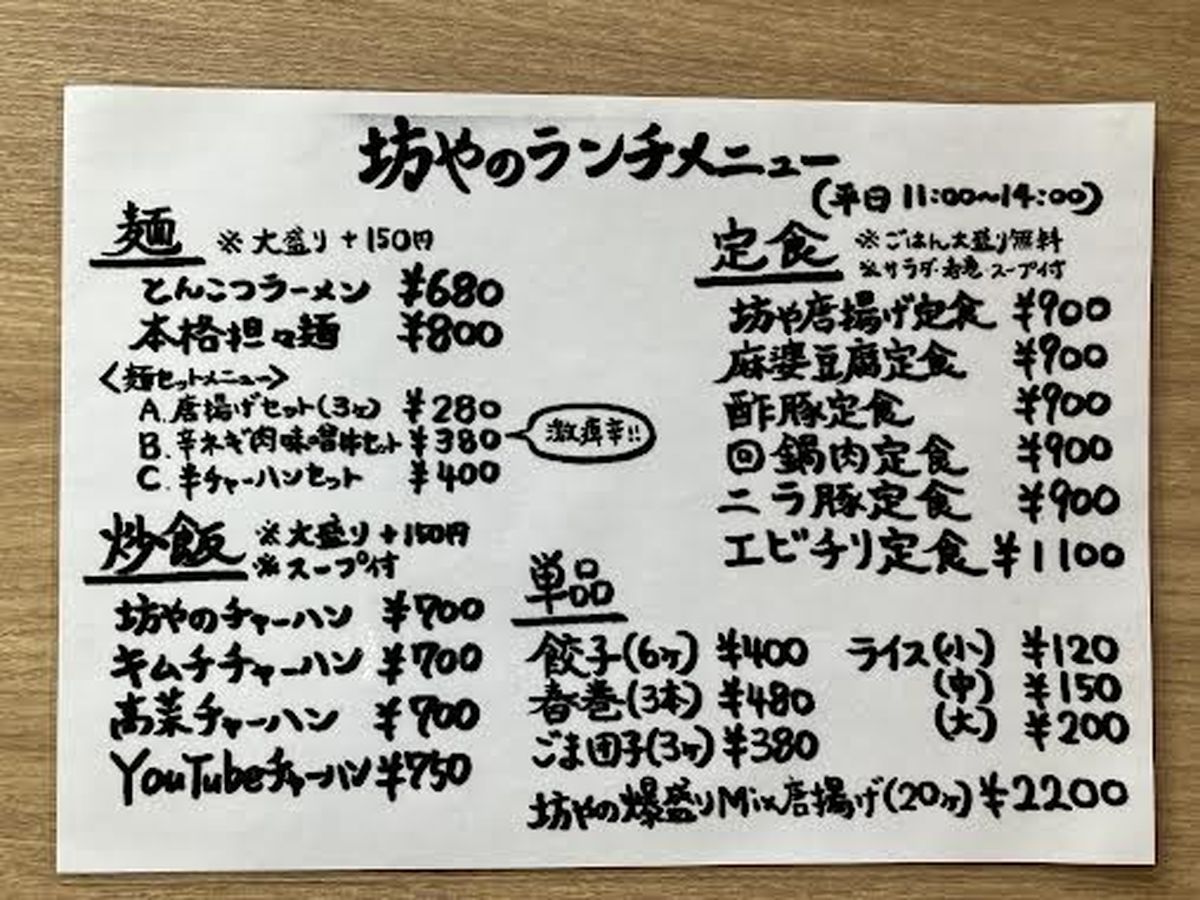 坊やのランチメニュー
(平日 11:00~14:00)
麺 ※大盛り+150円
とんこつラーメン ¥680
本格担々麺 ¥800
<麺セットメニュー>
A.唐揚げセット(3ヶ) ¥280
B.辛ネギ肉味噌丼セット ¥380
激痺辛!!
C.半チャーハンセット ¥400
炒飯 ※大盛り+150円
※スープ付
坊やのチャーハン ¥700
キムチチャーハン ¥700
高菜チャーハン ¥700
YouTubeチャーハン ¥750
定食 ※ごはん大盛り無料
※サラダ・春巻・スープ付
坊や唐揚げ定食 ¥900
麻婆豆腐定食 ¥900
酢豚定食 ¥900
回鍋肉定食 ¥900
ニラ豚定食 ¥900
エビチリ定食 ¥1100
単品
餃子(6ヶ) ¥400
春巻(3本) ¥480
ごま団子(3ヶ) ¥380
ライス(小) ¥120
(中) ¥150
(大) ¥200
坊やの爆盛りMix唐揚げ(20ヶ) ¥2200